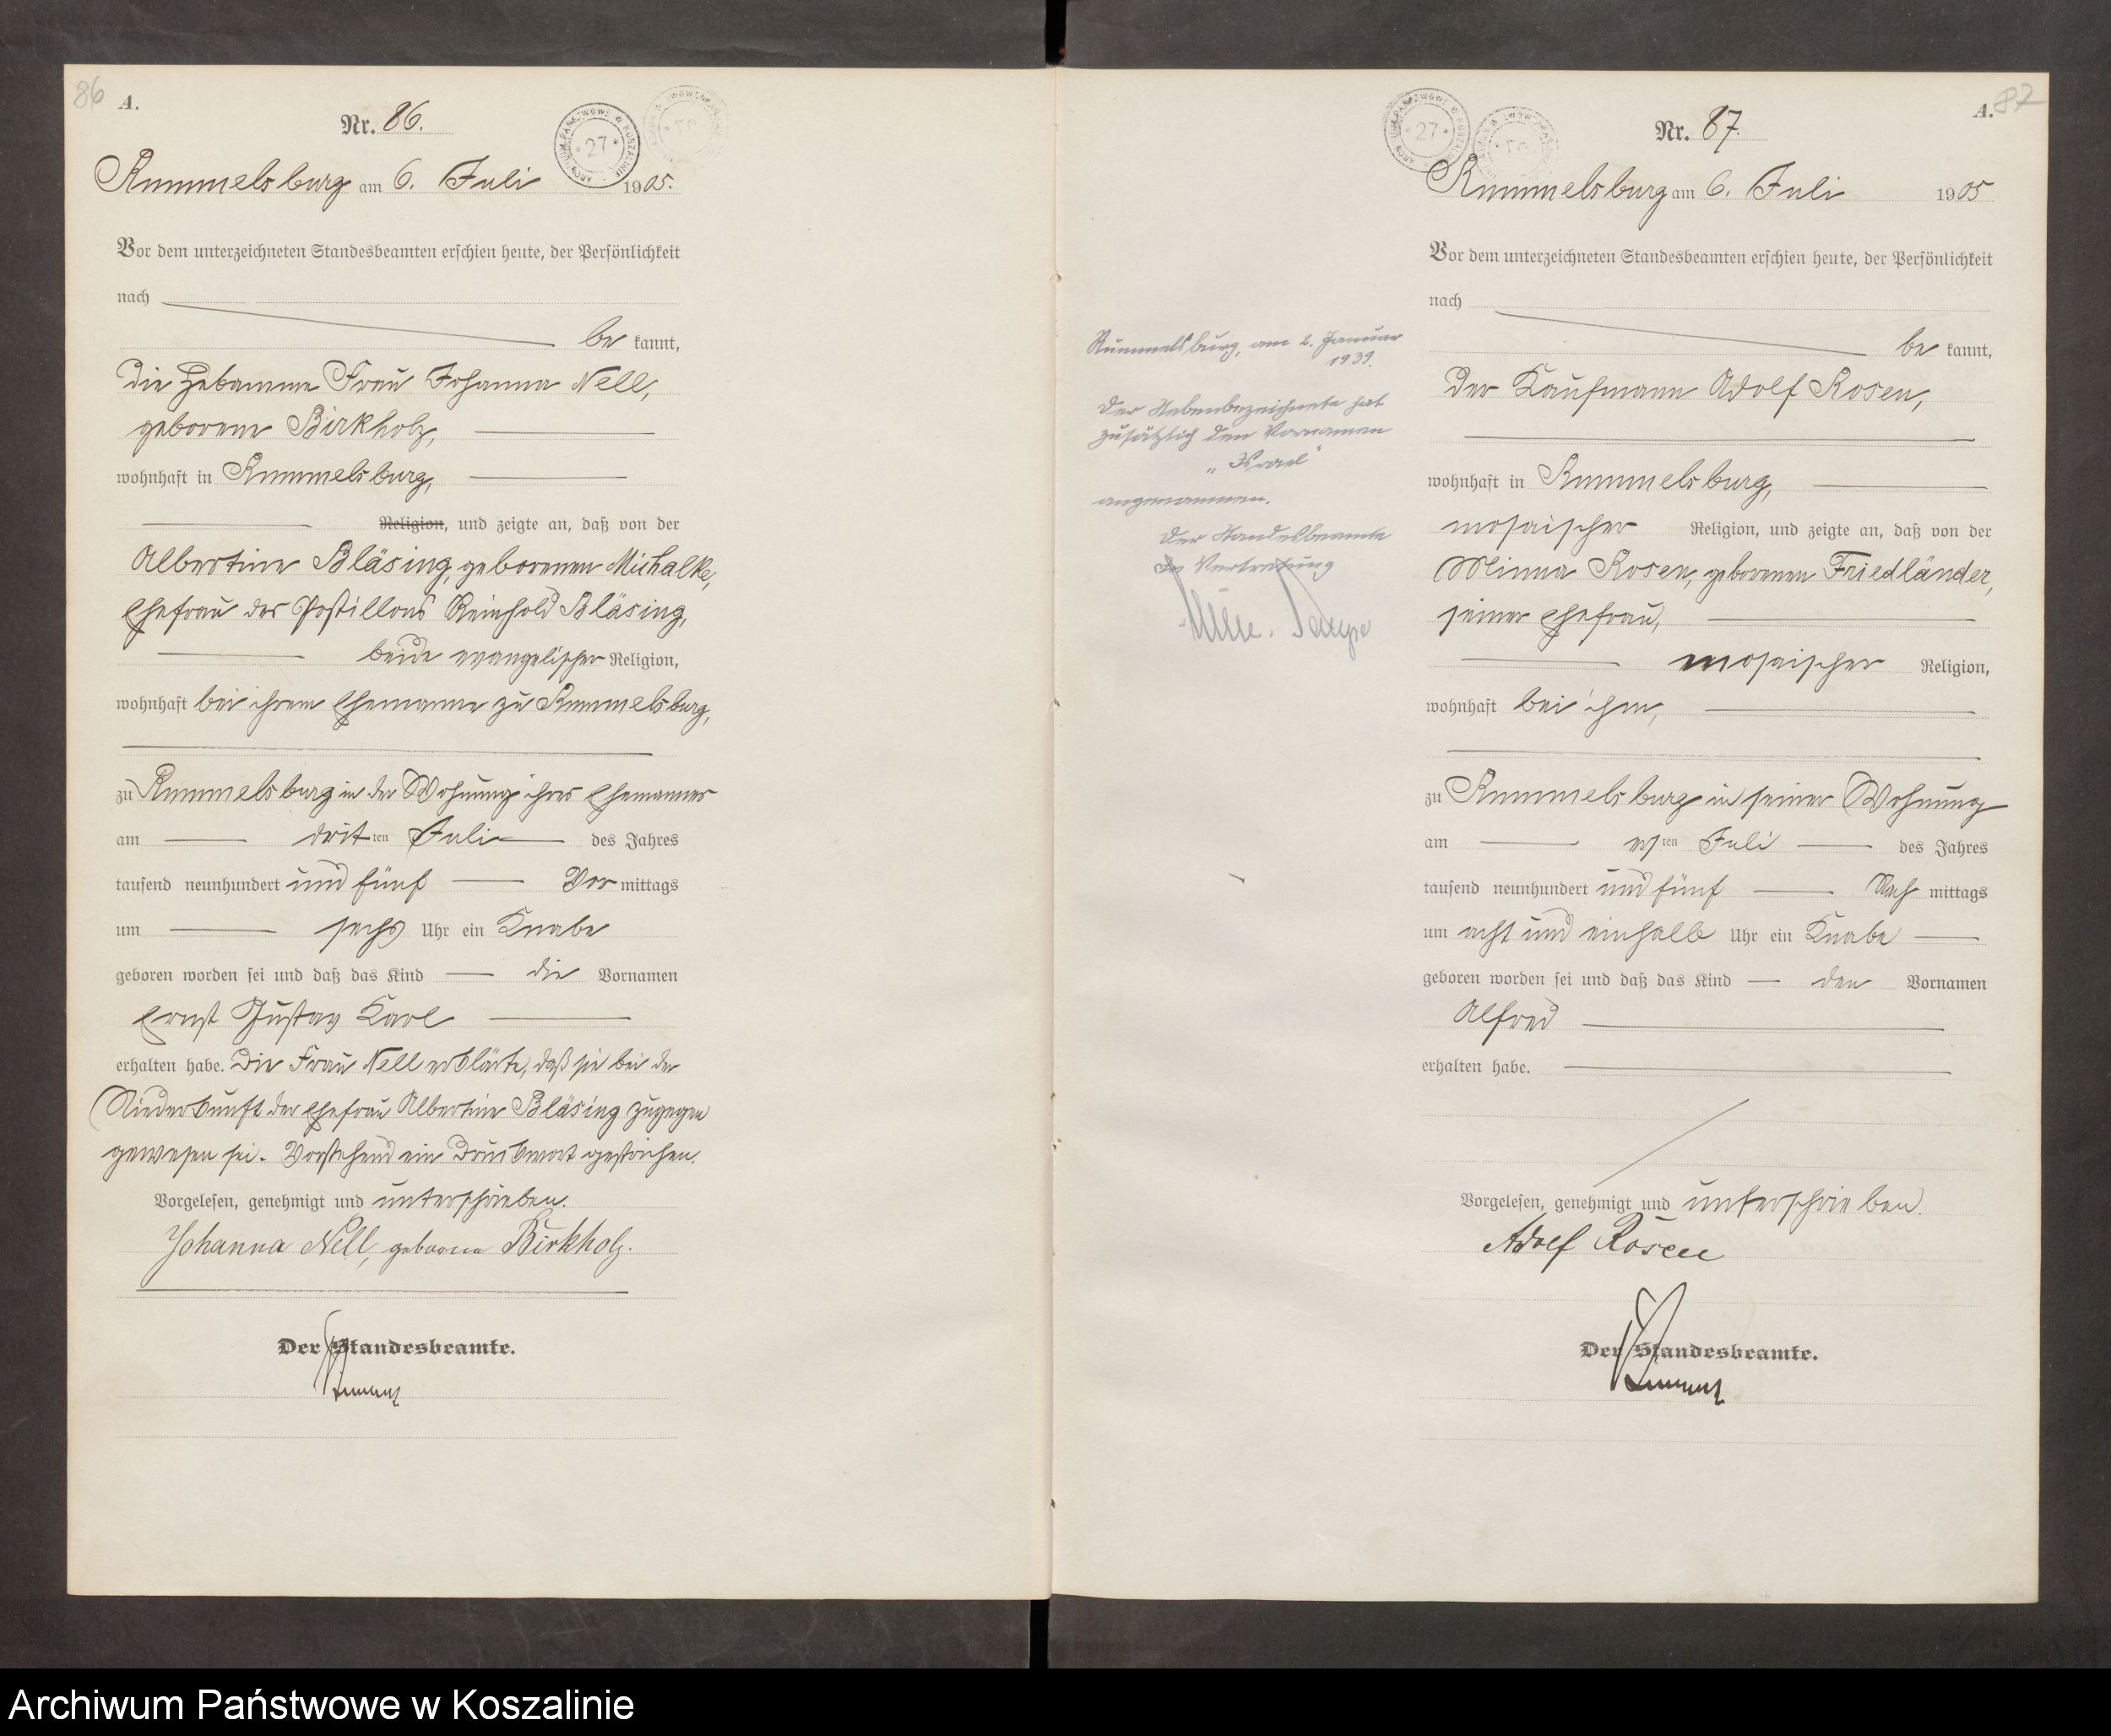 86
A.
Nr. 86.
Rummelsburg am 6. Juli 1905.
Vor dem unterzeichneten Standesbeamten erschien heute, der Persönlichkeit
nach
be kannt,
die Hebamme Frau Johanna Nell,
geborene Birkholz,
wohnhaft in Rummelsburg,
Religion, und zeigte an, daß von der
Albertine Bläsing, geborenen Michalke,
Ehefrau des Postillons Reinhold Bläsing,
beide evangelischer Religion,
wohnhaft bei ihrem Ehemanne zu Rummelsburg,
zu Rummelsburg in der Wohnung ihres Ehemannes
am dritten Juli des Jahres
tausend neunhundert und fünf Vor mittags
um sechs Uhr ein Knabe
geboren worden sei und daß das Kind die Vornamen
Ernst Gustav Karl
erhalten habe. Die Frau Nell erklärte, daß sie bei der
Niederkunft der Ehefrau Albertine Bläsing zugegen
gewesen sei. Vorstehend ein Druckwort gestrichen.
Vorgelesen, genehmigt und unterschrieben.
Johanna Nell, geborene Birkholz.
Der Standesbeamte.
ARCHIWUM PAŃSTWOWE W KOSZALINIE
27
87
A.
Nr. 87.
Rummelsburg am 6. Juli 1905
Vor dem unterzeichneten Standesbeamten erschien heute, der Persönlichkeit
nach
be kannt,
der Kaufmann Adolf Rosen,
wohnhaft in Rummelsburg,
mosaischer Religion, und zeigte an, daß von der
Minna Rosen, geborenen Friedländer,
seiner Ehefrau,
mosaischer Religion,
wohnhaft bei ihm,
zu Rummelsburg in seiner Wohnung
am ersten Juli des Jahres
tausend neunhundert und fünf Nach mittags
um acht und einhalb Uhr ein Knabe
geboren worden sei und daß das Kind den Vornamen
Alfred
erhalten habe.
Vorgelesen, genehmigt und unterschrieben.
Adolf Rosen
Der Standesbeamte.
ARCHIWUM PAŃSTWOWE W KOSZALINIE
27
Rummelsburg, am 2. Januar
1939.
Der Nebenbezeichnete hat
zusätzlich den Vornamen
"Israel"
angenommen.
Der Standesbeamte
In Vertretung
Archiwum Państwowe w Koszalinie